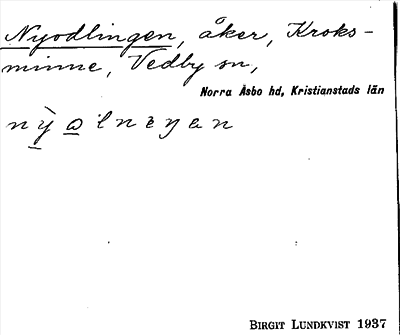 Nyodlingen, åker, Kroks-
minne, Vedby sn,
Norra Åsbo hd, Kristianstads län
BIRGIT LUNDKVIST 1937